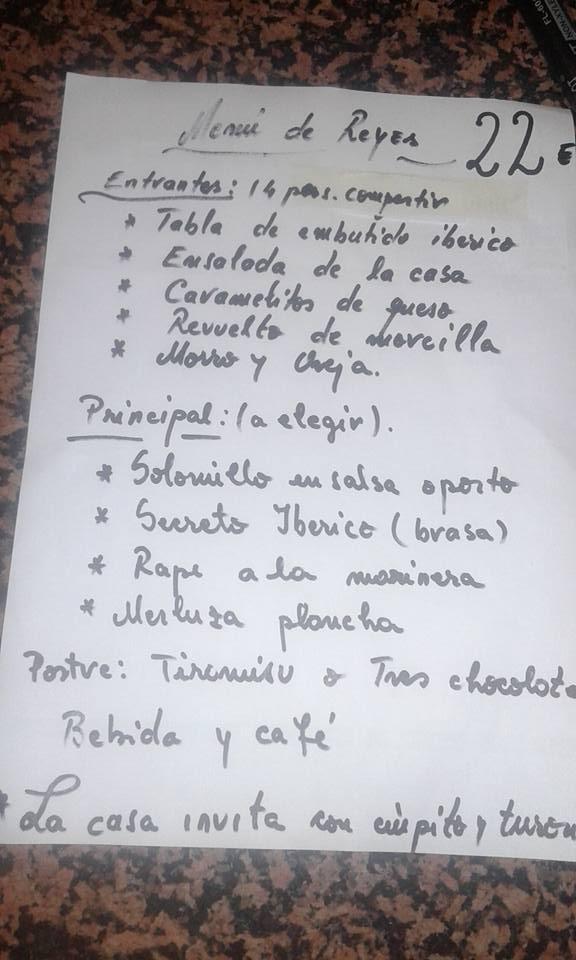 Menú de Reyes 22 €
Entrantes: 14 pers. compartir
* Tabla de embutido iberico
* Ensalada de la casa
* Caramelitos de queso
* Revuelto de morcilla
* Morro y Oreja.
Principal: (a elegir).
* Solomillo en salsa oporto
* Secreto Iberico (brasa)
* Rape a la marinera
* Merluza plancha
Postre: Tiramisu o Tres chocolate
Bebida y café
* La casa invita con chupito y turron